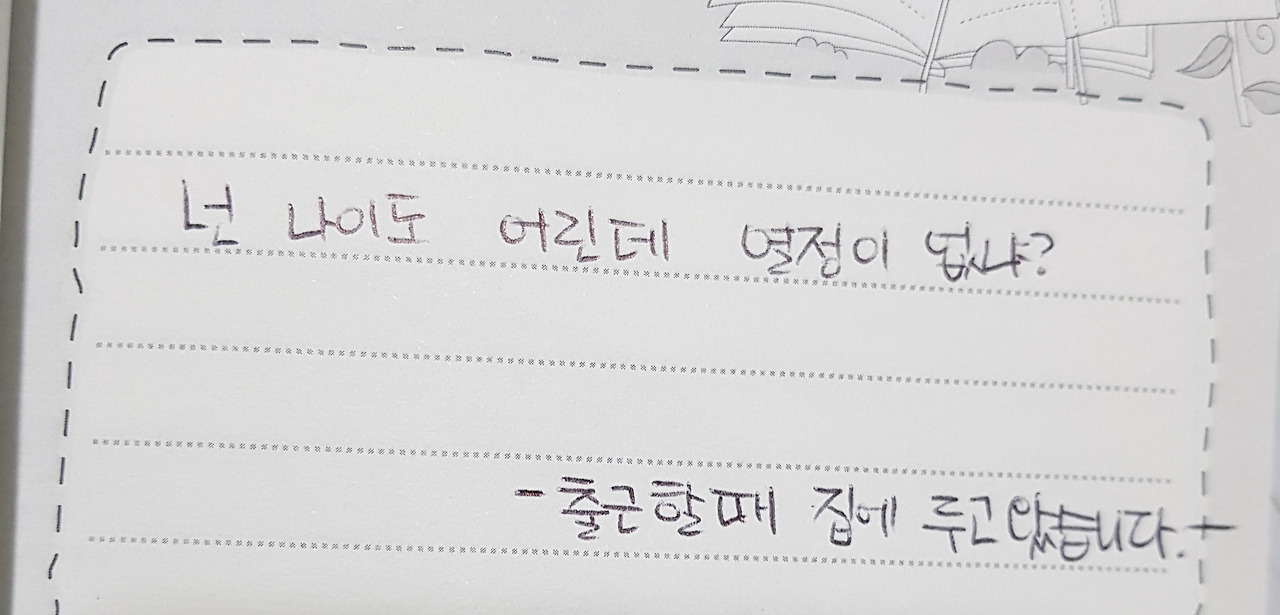 넌 나이도 어린데 열정이 없냐?
- 출근할때 집에 두고 왔습니다. -